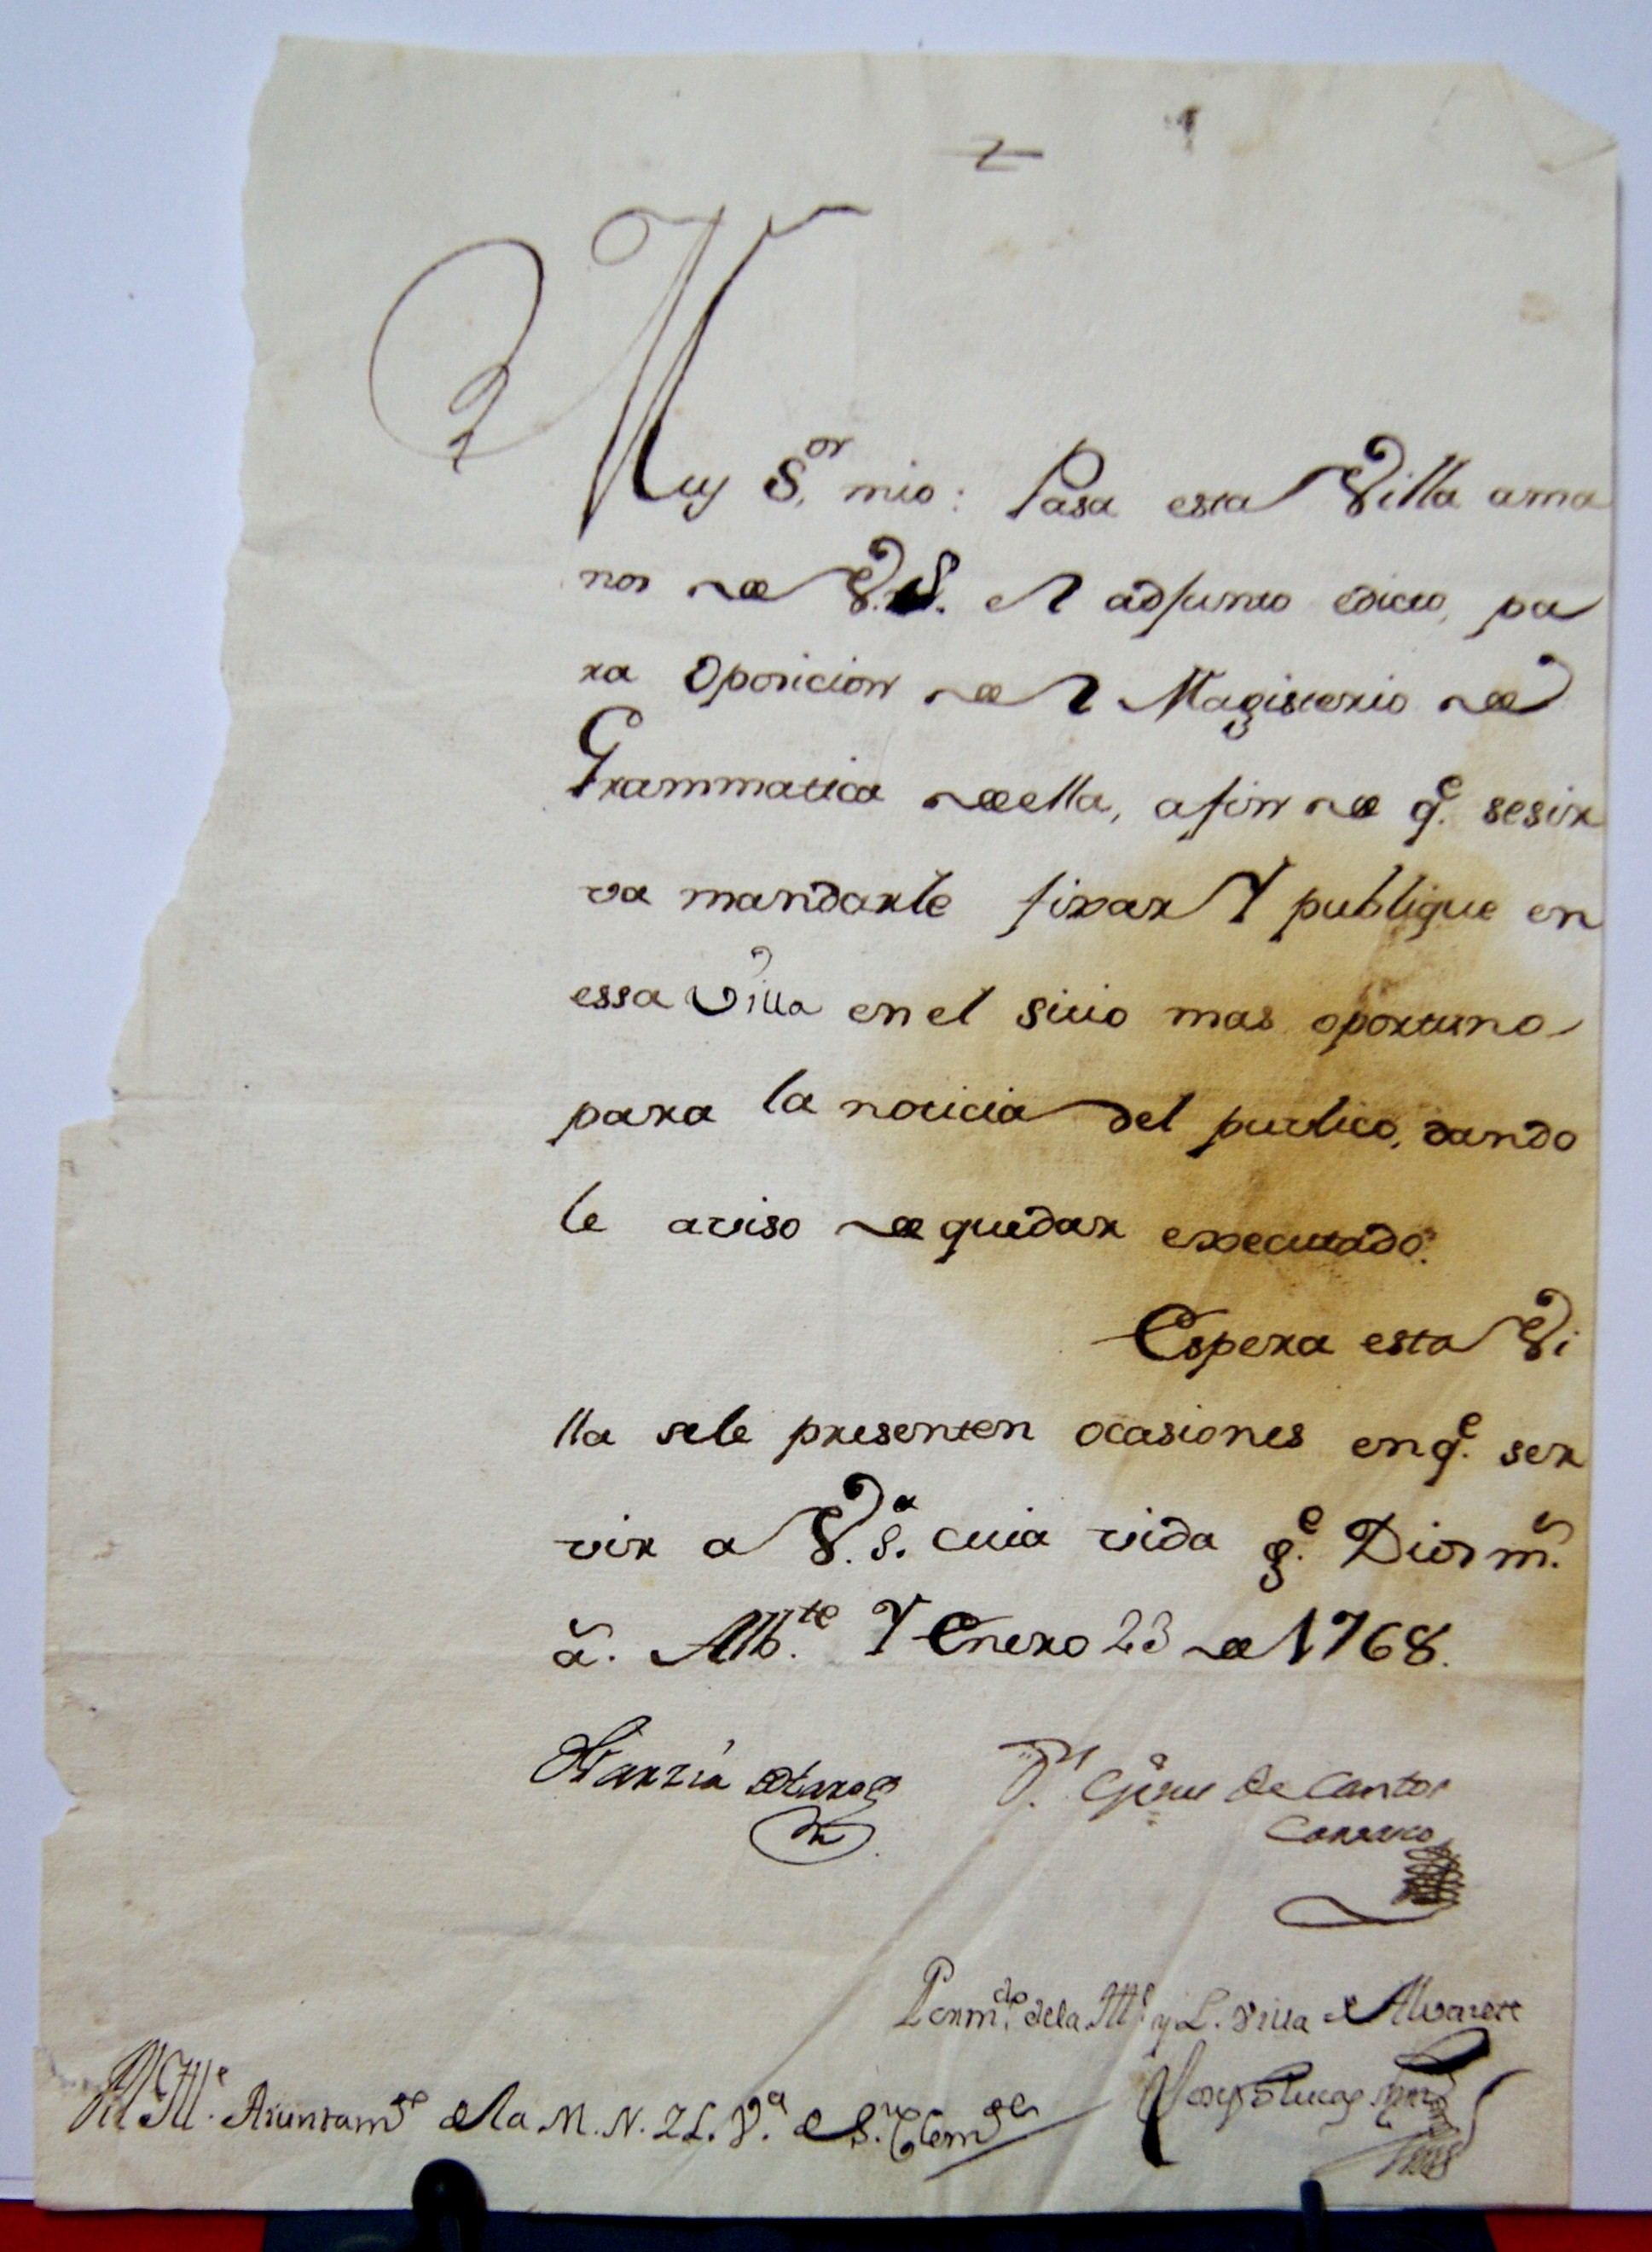 Muy S.or mio: Pasa esta Villa ama
nos de V.S. el adjunto edicto, pa
ra oposicion del Magisterio de
Grammatica de ella, afin de q.e sesir
va mandarle fixar Y publique en
essa Villa en el sitio mas oportuno
para la noticia del publico, dando
le aviso de quedar executado.
Espera esta Vi
lla sele presenten ocasiones en q.e ser
vir a V.S.a cuia vida g.e Dios m.s
a.s Alb.te Y Enero 23 de 1768.
D.n Gines de Cantos
Carrasco
Por m.do dela Ille y L. Villa de Alvarete
Ill.e Aiuntam.to de la M. N. y L. V.a de S.n Clem.te